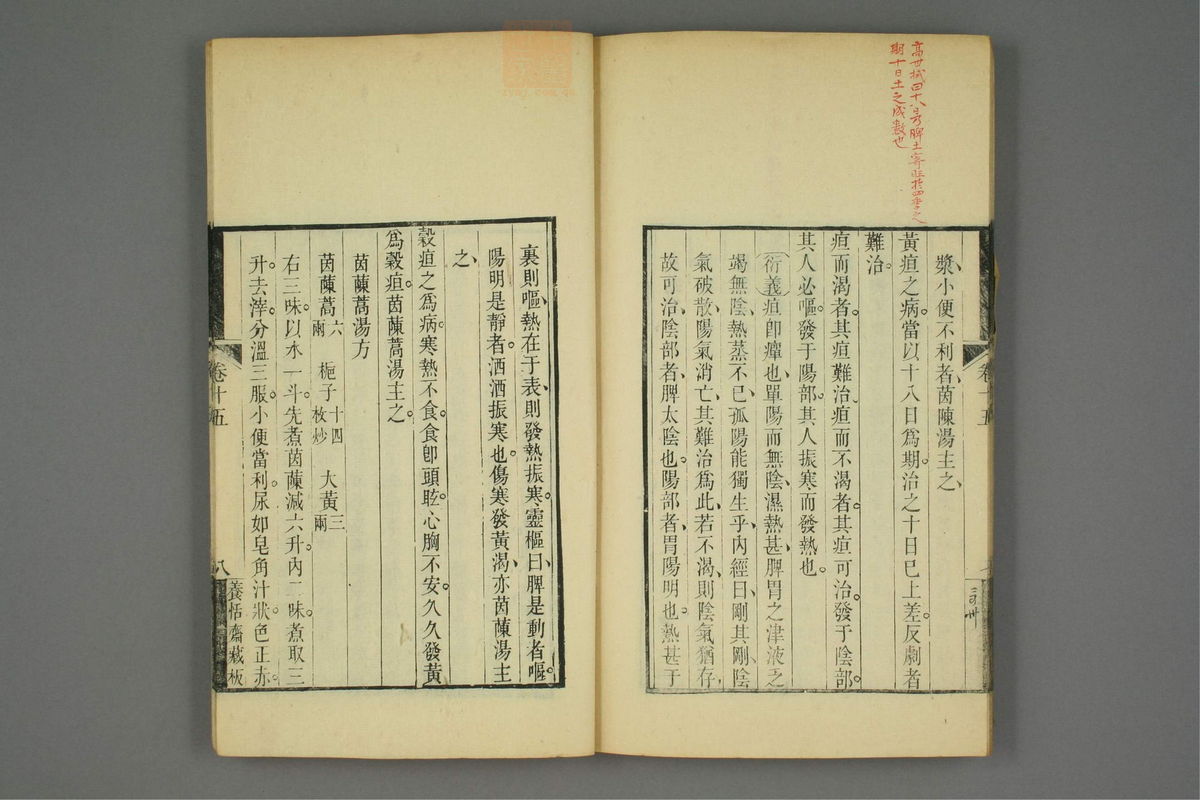 高世栻曰十八日乃脾土寄旺於四季之
期十日土之成數也
漿小便不利者茵陳湯主之
黃疸之病當以十八日爲期治之十日已上差反劇者
難治
疸而渴者其疸難治疸而不渴者其疸可治發于陰部
其人必嘔發于陽部其人振寒而發熱也
衍義疸卽癉也單陽而無陰濕熱甚脾胃之津液乏
竭無陰熱蒸不已孤陽能獨生乎內經曰剛其剛陰
氣破散陽氣消亡其難治爲此若不渴則陰氣猶存
故可治陰部者脾太陰也陽部者胃陽明也熱甚于
裏則嘔熱在于表則發熱振寒靈樞曰脾是動者嘔
陽明是靜者洒洒振寒也傷寒發黃渴亦茵蔯湯主
之
穀疸之爲病寒熱不食食卽頭眩心胸不安久久發黃
爲穀疸茵蔯蒿湯主之
茵蔯蒿湯方
茵蔯蒿六兩 梔子十四枚炒 大黃三兩
右三味以水一斗先煮茵蔯減六升內二味煮取三
升去滓分溫三服小便當利尿如皂角汁狀色正赤
卷十五 八 養恬齋藏板